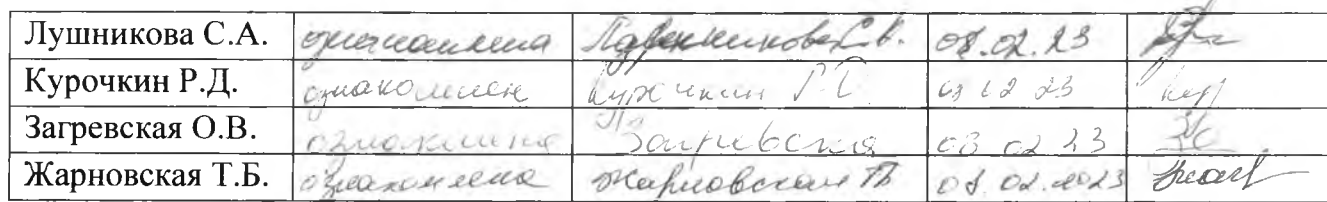 Лушникова С.А. ознакомлена С.В. 08.02.23
Курочкин Р.Д. ознакомлен Курочкин Р.Д. 23
Загревская О.В. ознакомлена Загревская 08 02 23
Жарновская Т.Б. ознакомлена Жарновская ТБ 08.02.2023